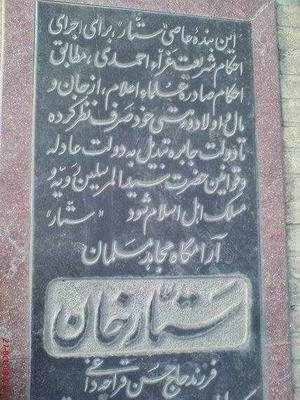 این بنده عاصی ستّار، برای اجرای
احکام شریعت غرّاء احمدی، مطابق
احکام صادره علماء اعلام، از جان و
مال و اولاد و هستی خود صرف نظر کرده
تا دولت جابره تبدیل به دولت عادله
و قوانین حضرت سیدالمرسلین رویه و
مسلک اهل اسلام شود «ستّار»
آرامگاه مجاهد مسلمان
ستّارخان
فرزند حاج حسن قراجه داغی